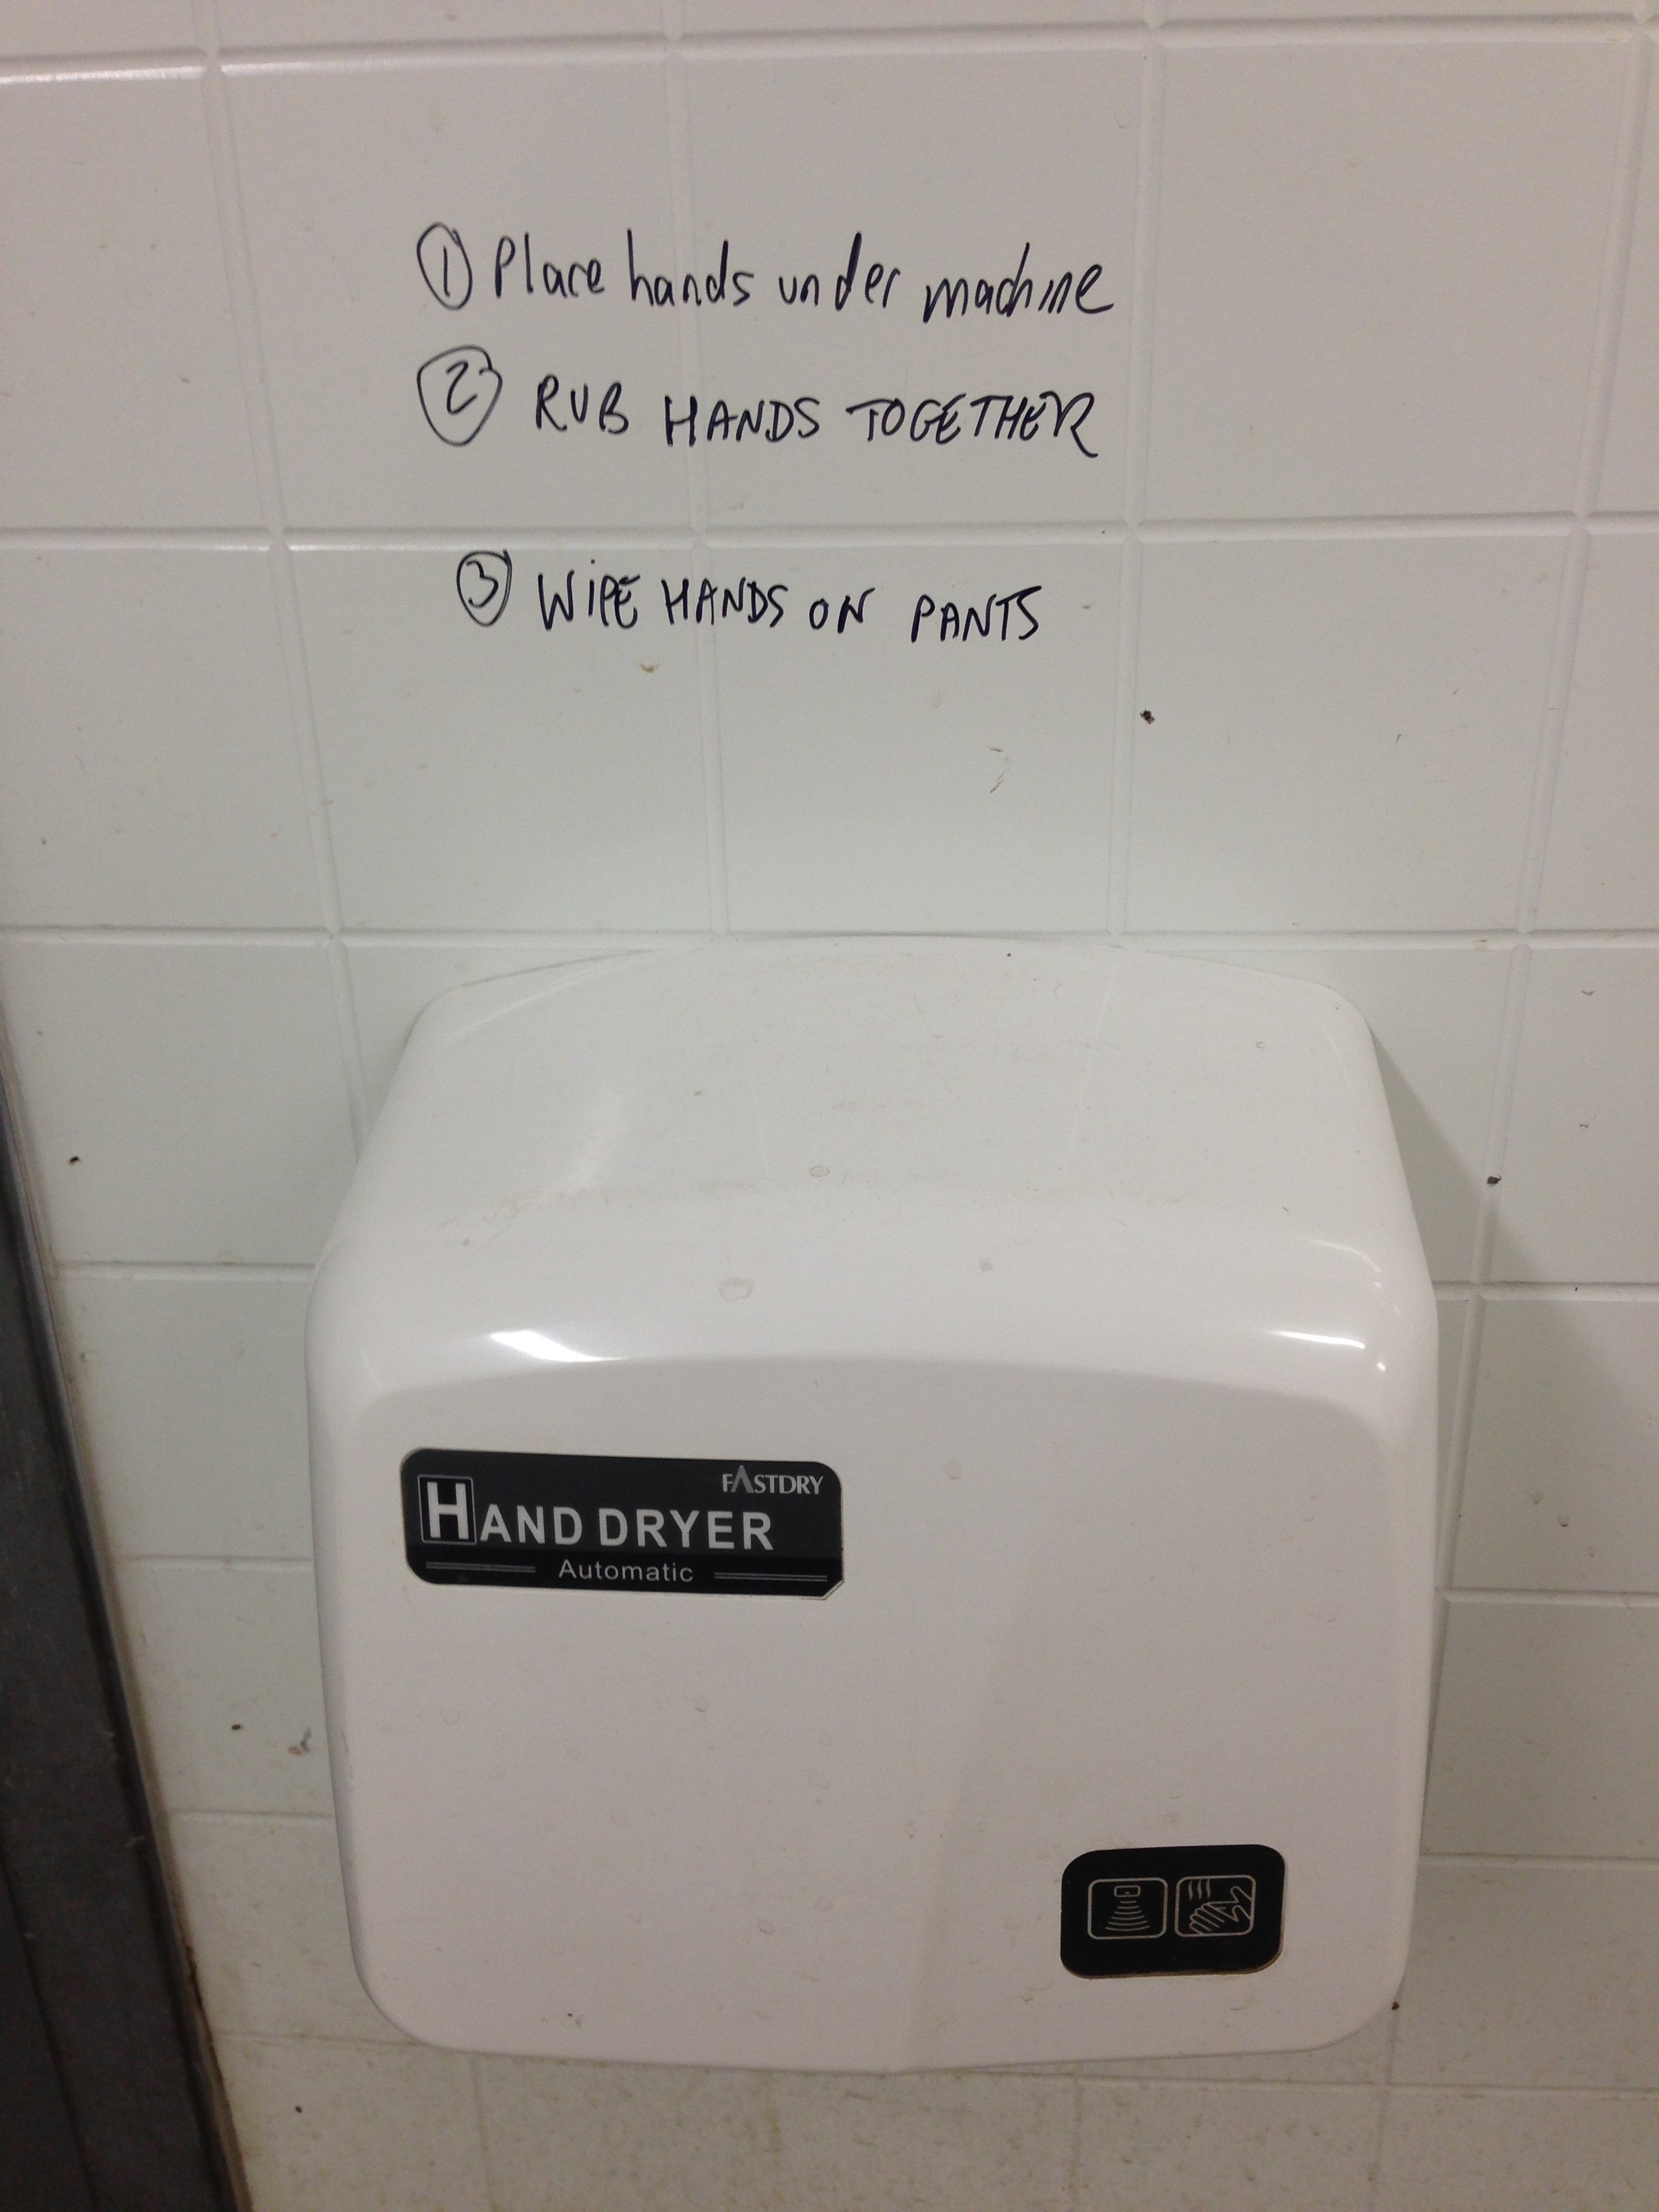 ① Place hands under machine
② RUB HANDS TOGETHER
③ WIPE HANDS ON PANTS
FASTDRY
HAND DRYER
Automatic